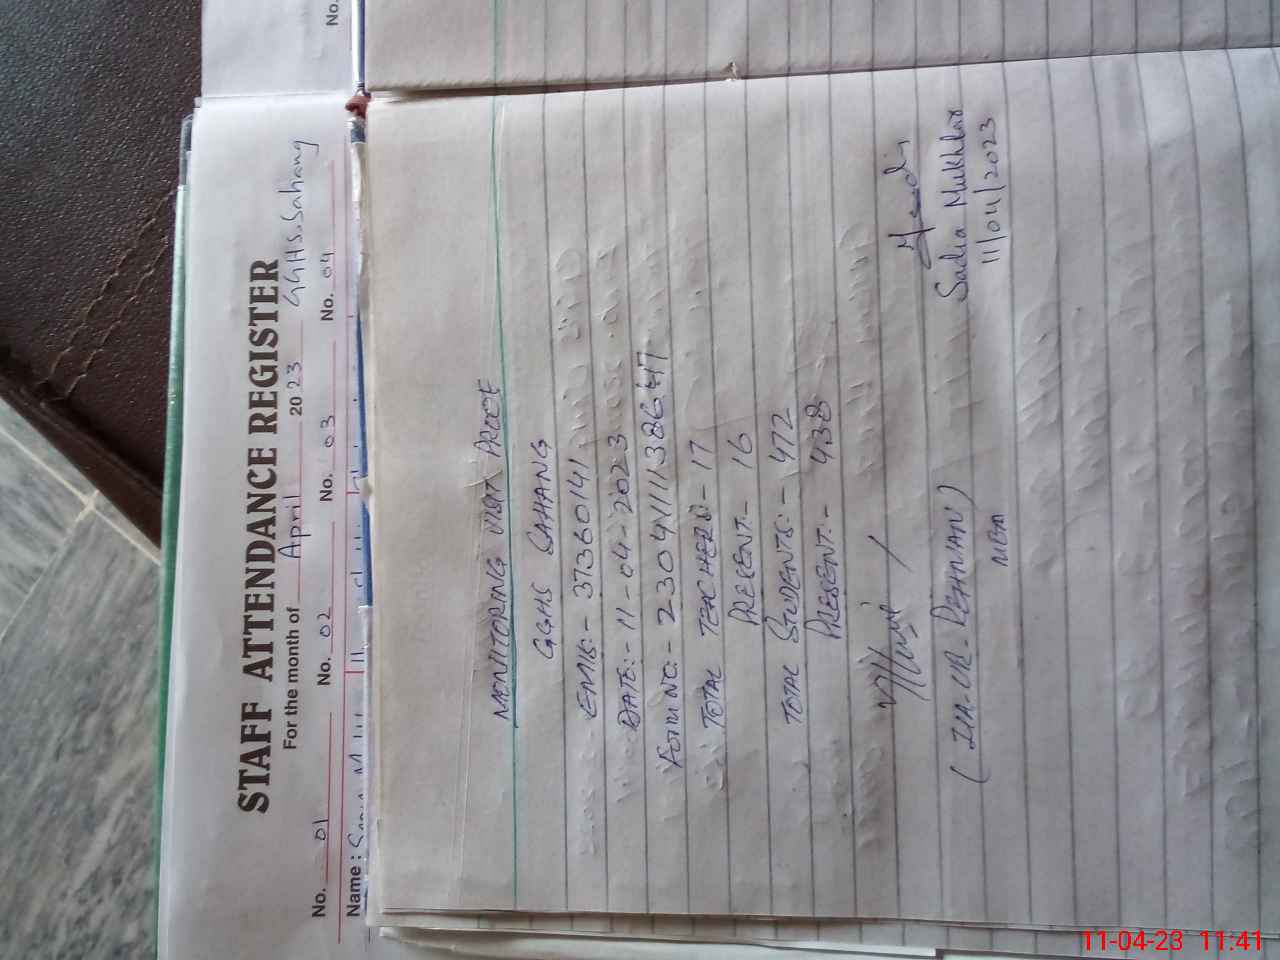 No.
STAFF ATTENDANCE REGISTER
For the month of April 2023 GGHS. Sahang
No. 01 No. 02 No. 03 No. 04
Name:
MONITORING VISIT PROOF
GGHS SAHANG
EMIS:- 37360141
DATE:- 11-04-2023
FORM NO:- 230411113866417
TOTAL TEACHERS- 17
PRESENT:- 16
TOTAL STUDENTS:- 472
PRESENT:- 438
(ZIA-UR-REHMAN) Sadia Mukhtar
MEA 11/04/2023
11-04-23 11:41